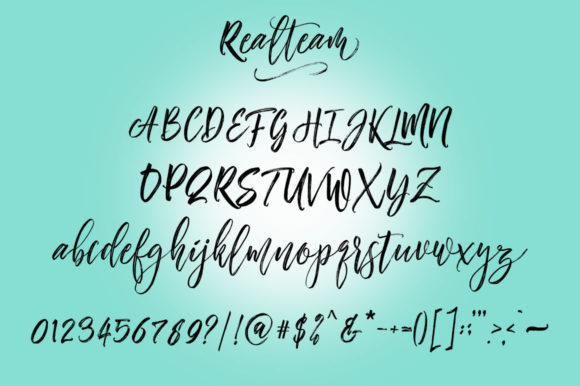 Realteam
ABCDEFGHIJKLMN
OPQRSTUVWXYZ
abcdefghijklmnopqrstuvwxyz
0123456789?/!@#$%^&*-+=()[]:;"'.>,<`~